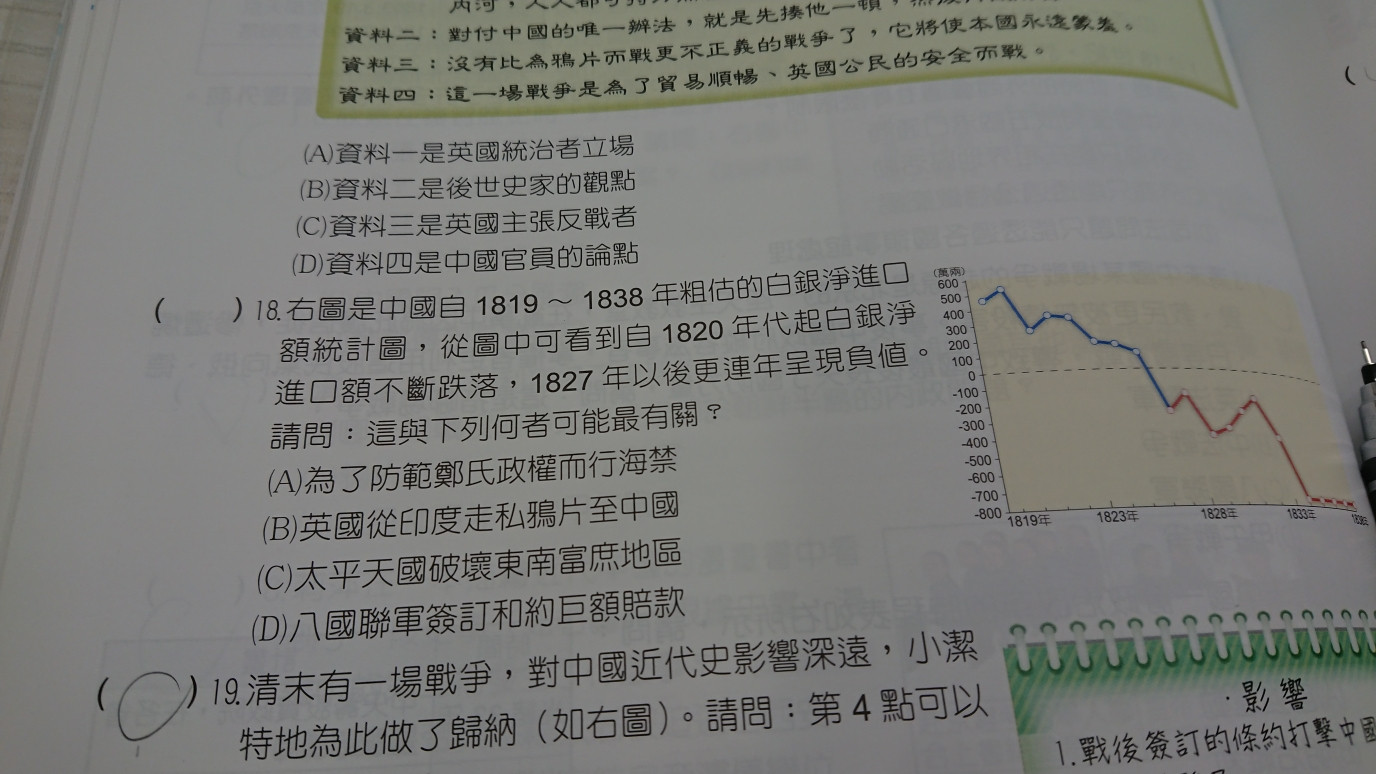 資料二：對付中國的唯一辦法，就是先揍他一頓，
資料三：沒有比為鴉片而戰更不正義的戰爭了，它將使本國永遠蒙羞。
資料四：這一場戰爭是為了貿易順暢、英國公民的安全而戰。
(A)資料一是英國統治者立場
(B)資料二是後世史家的觀點
(C)資料三是英國主張反戰者
(D)資料四是中國官員的論點
(　　)18.右圖是中國自1819～1838年粗估的白銀淨進口
額統計圖，從圖中可看到自1820年代起白銀淨
進口額不斷跌落，1827年以後更連年呈現負值。
請問：這與下列何者可能最有關？
(A)為了防範鄭氏政權而行海禁
(B)英國從印度走私鴉片至中國
(C)太平天國破壞東南富庶地區
(D)八國聯軍簽訂和約巨額賠款
(萬兩)
600
500
400
300
200
100
0
-100
-200
-300
-400
-500
-600
-700
-800
1819年 1823年 1828年 1833年
(　　)19.清末有一場戰爭，對中國近代史影響深遠，小潔
特地為此做了歸納（如右圖）。請問：第4點可以
·影響
1.戰後簽訂的條約打擊中國